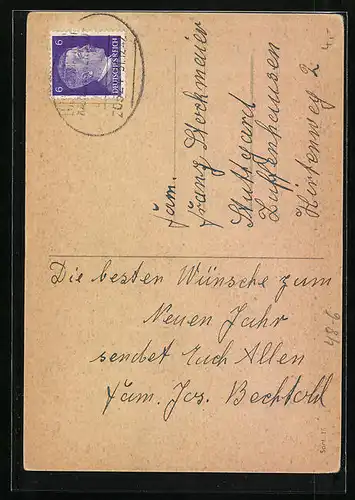 6 DEUTSCHES REICH 6
Fam.
Franz Stockmaier
Stuttgard
Zuffenhausen
Hirtenweg 2
4,-
Die besten Wünsche zum
Neuen Jahr
sendet Euch Allen
Fam. Jos. Bechtold
48-6